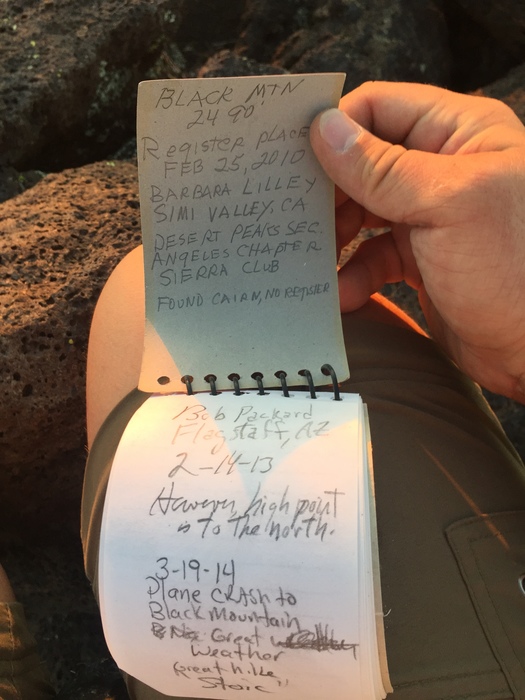 BLACK MTN
2490'
Register place
FEB 25, 2010
BARBARA LILLEY
SIMI VALLEY, CA
DESERT PEAKS SEC.
ANGELES CHAPTER
SIERRA CLUB
FOUND CAIRN, NO REGISTER
Bob Packard
Flagstaff, AZ
2-14-13
However, high point
is to the north.
3-19-14
Plane CRAsh to
Black Mountain
Great
Weather
Great hike
Stoic